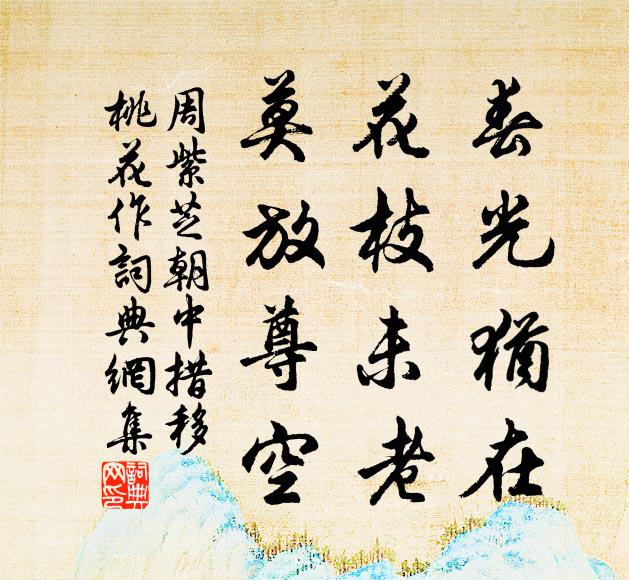 春光猶在
花枝未老
莫放尊空
周紫芝朝中措移
桃花作詞典網集
詞典網印